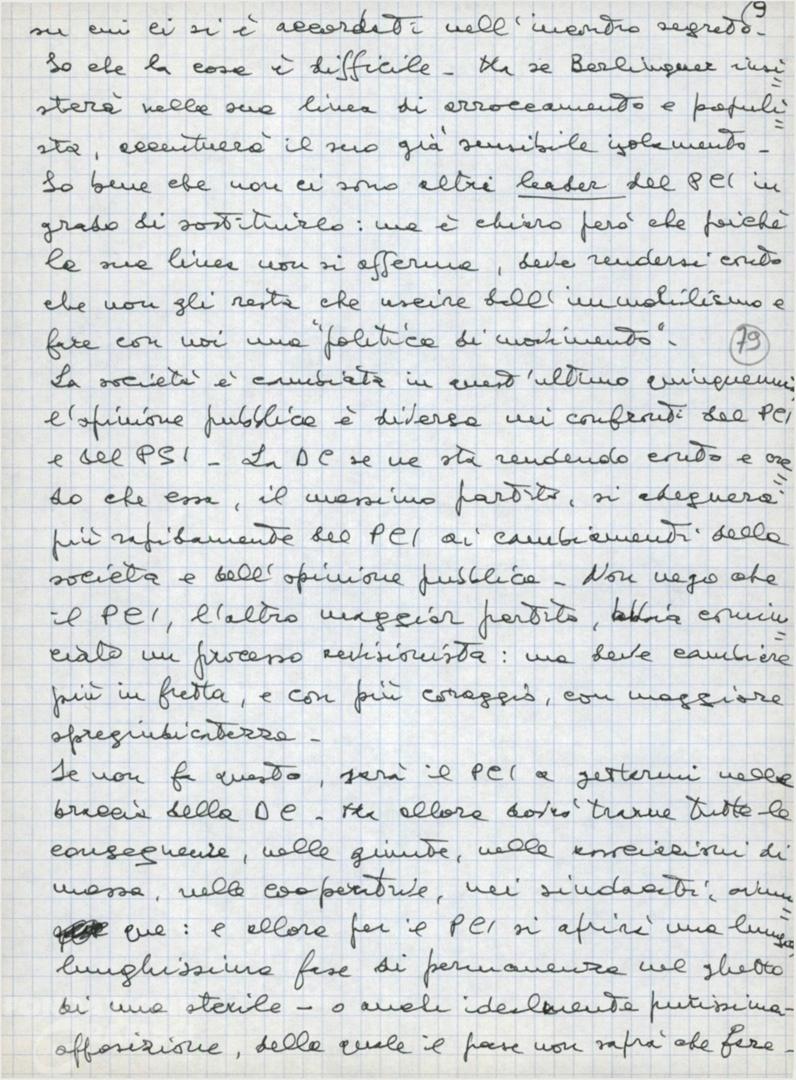 9
su cui ci si è accordati nell'incontro segreto.
So che la cosa è difficile - Ma se Berlinguer insi
sterà nella sua linea di arroccamento e populi
sta, accentuerà il suo già sensibile isolamento -
So bene che non ci sono altri leader del PCI in
grado di sostituirlo: ma è chiaro però che poichè
la sua linea non si afferma, deve rendersi conto
che non gli resta che uscire dall'immobilismo e
fare con noi una "politica di movimento".
79
La società è cambiata in quest'ultimo quinquennio,
l'opinione pubblica è diversa nei confronti del PCI
e del PSI - La DC se ne sta rendendo conto e cre
do che essa, il massimo partito, si adeguerà
più rapidamente del PCI ai cambiamenti della
società e dell'opinione pubblica - Non nego che
il PCI, l'altro maggior partito, abbia comin
ciato un processo revisionista: ma deve cambiare
più in fretta, e con più coraggio, con maggiore
spregiudicatezza -
Se non fa questo, sarà il PCI a gettarmi nelle
braccia della DC - Ma allora dovrò trarne tutte le
conseguenze, nelle giunte, nelle associazioni di
massa, nelle cooperative, nei sindacati,
que: e allora per il PCI si aprirà una lunga,
lunghissima fase di permanenza nel ghetto
di una sterile - o anche idealmente purissima -
opposizione, della quale il paese non saprà che fare -